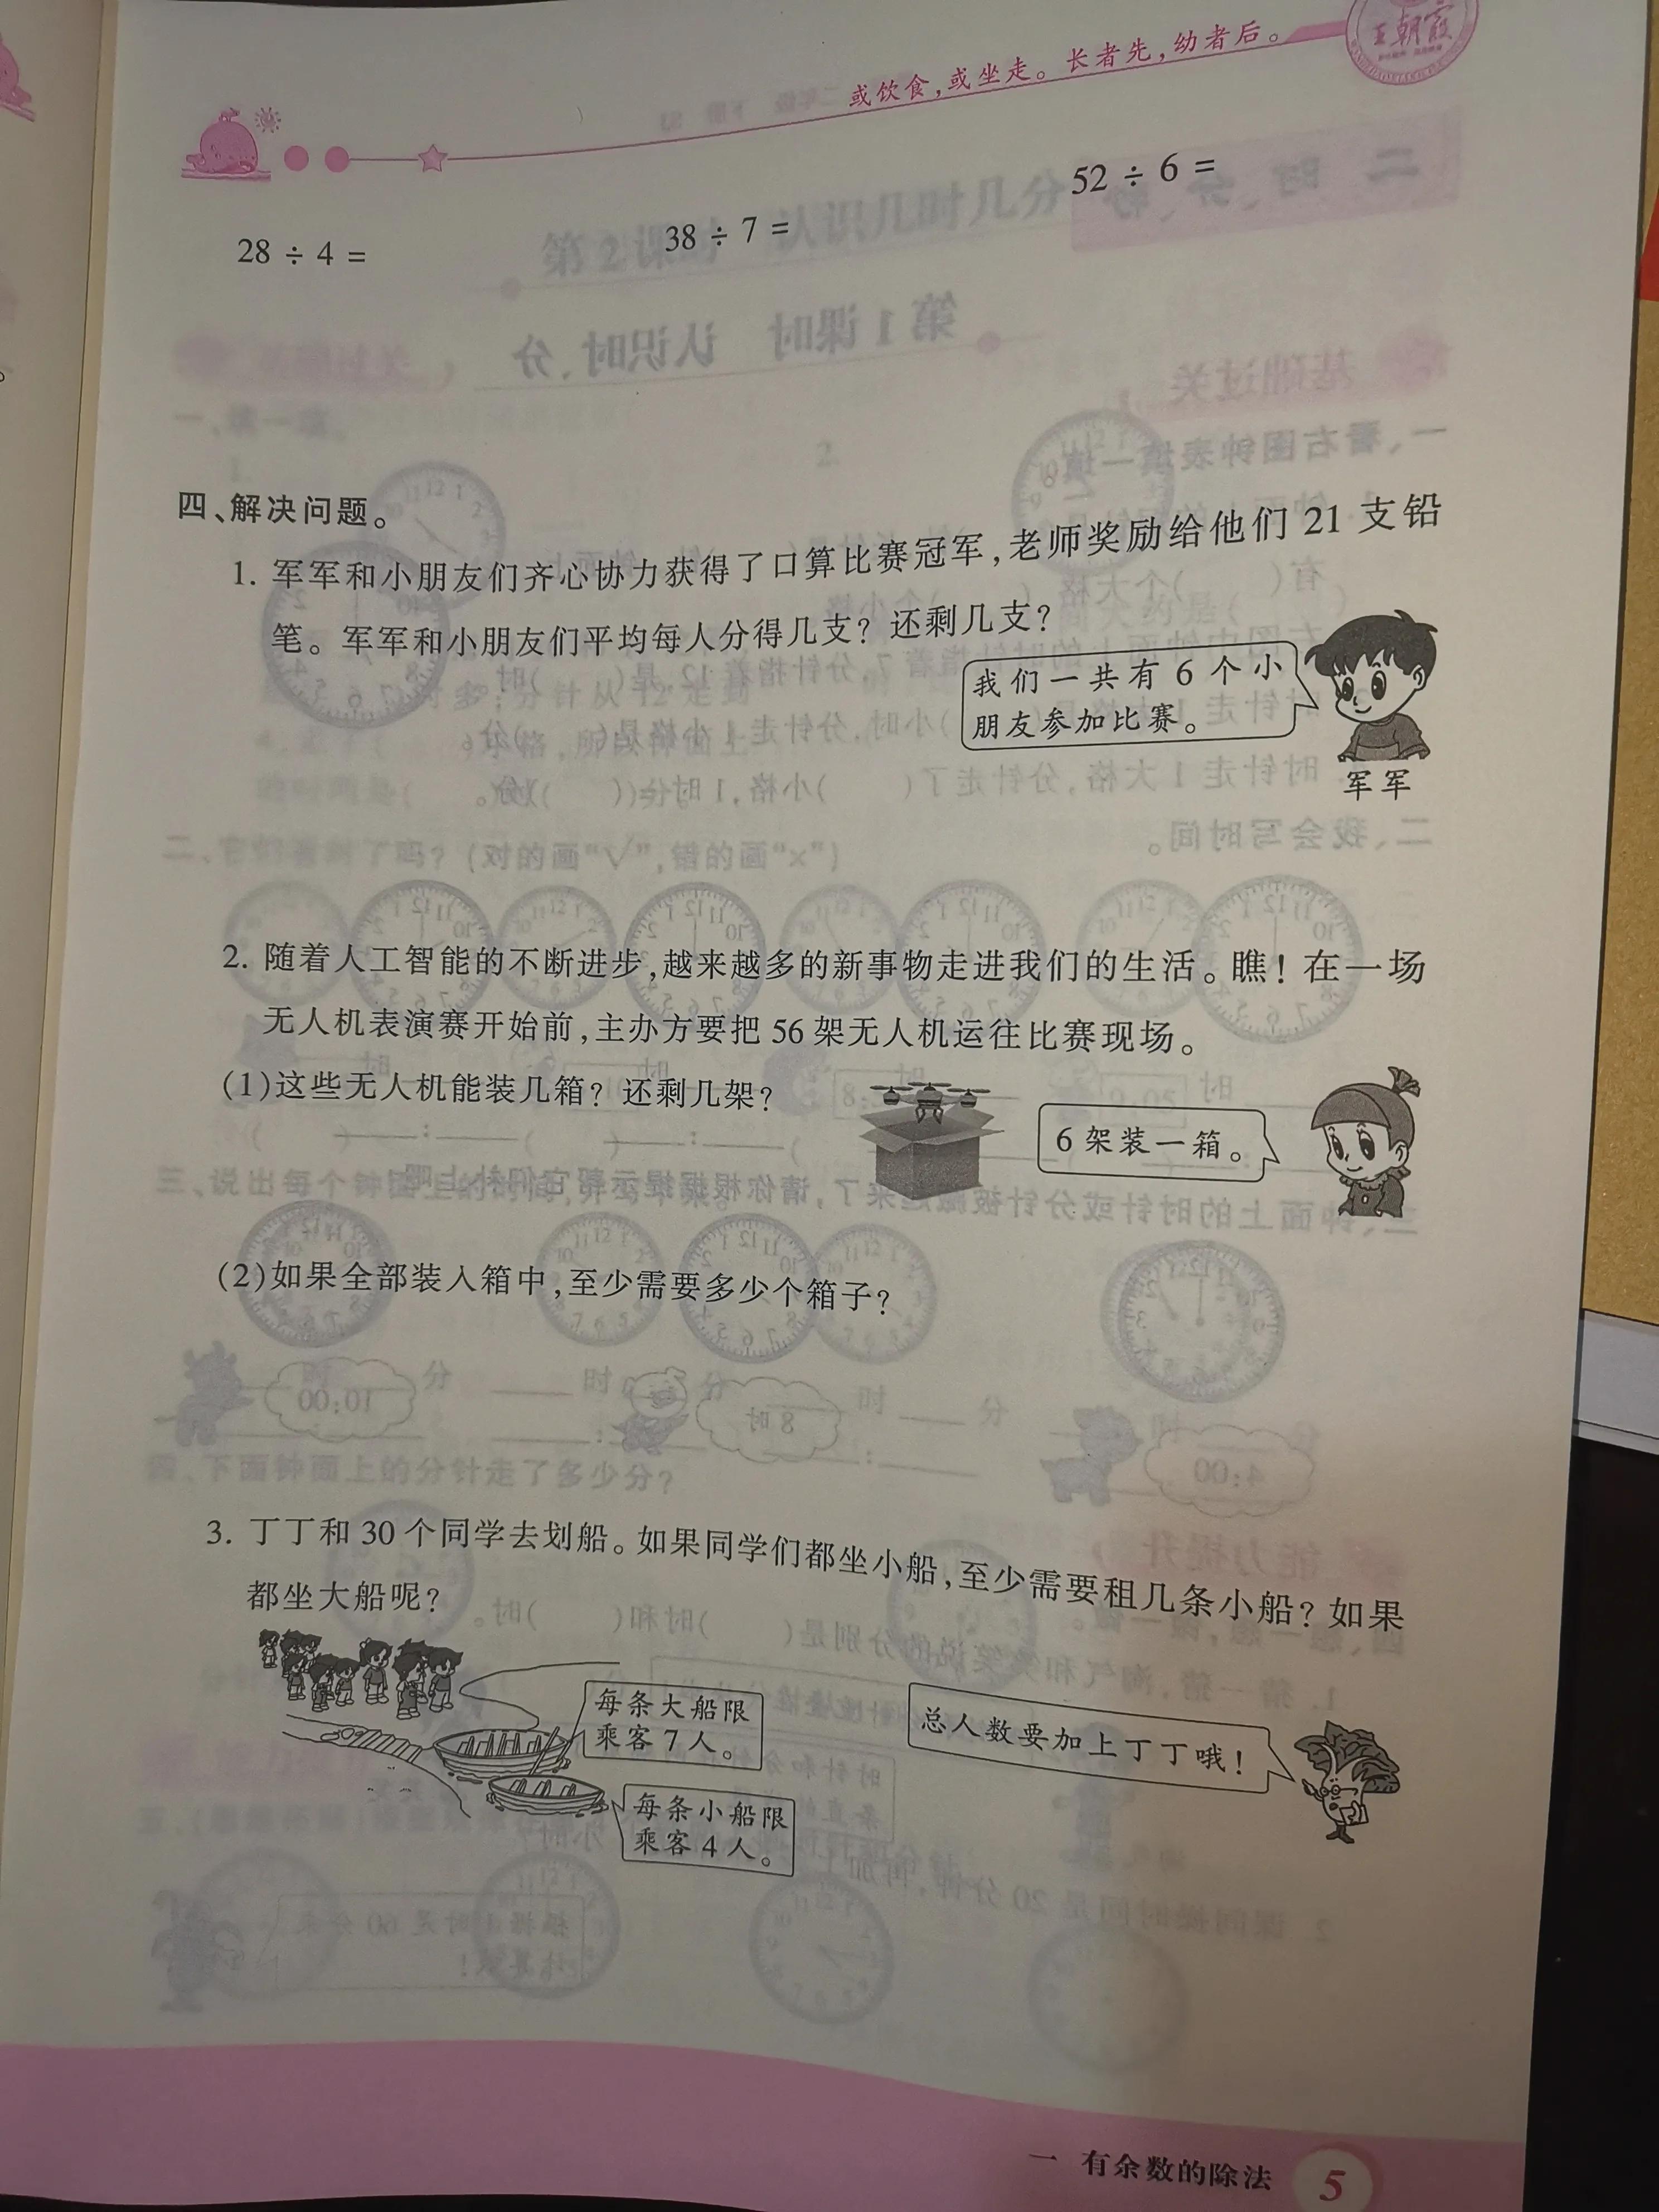 或饮食,或坐走。长者先,幼者后。
王朝霞
28 ÷ 4 =
38 ÷ 7 =
52 ÷ 6 =
四、解决问题。
1. 军军和小朋友们齐心协力获得了口算比赛冠军,老师奖励给他们 21 支铅
笔。军军和小朋友们平均每人分得几支? 还剩几支?
我们一共有 6 个小
朋友参加比赛。
军军
2. 随着人工智能的不断进步,越来越多的新事物走进我们的生活。瞧! 在一场
无人机表演赛开始前,主办方要把 56 架无人机运往比赛现场。
(1)这些无人机能装几箱? 还剩几架?
6 架装一箱。
(2)如果全部装入箱中,至少需要多少个箱子?
3. 丁丁和 30 个同学去划船。如果同学们都坐小船,至少需要租几条小船? 如果
都坐大船呢?
每条大船限
乘客 7 人。
总人数要加上丁丁哦!
每条小船限
乘客 4 人。
一 有余数的除法 5